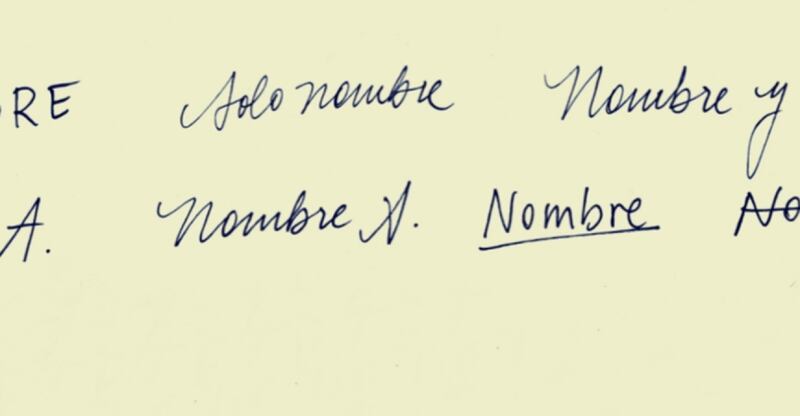 RE Solo nombre Nombre y
A. Nombre A. Nombre No